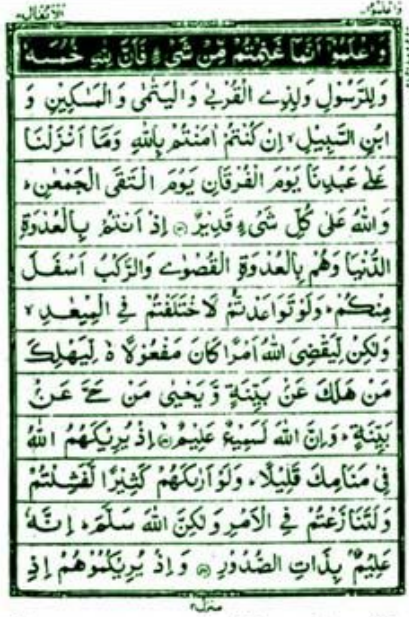 واعلموا۱۰ الانفال۸
وَاعْلَمُوْۤا اَنَّمَا غَنِمْتُمْ مِّنْ شَیْءٍ فَاَنَّ لِلّٰهِ خُمُسَهٗ
وَلِلرَّسُوْلِ وَلِذِی الْقُرْبٰی وَالْیَتٰمٰی وَالْمَسٰكِیْنِ وَ
ابْنِ السَّبِیْلِ ۙ اِنْ كُنْتُمْ اٰمَنْتُمْ بِاللّٰهِ وَمَاۤ اَنْزَلْنَا
عَلٰی عَبْدِنَا یَوْمَ الْفُرْقَانِ یَوْمَ الْتَقَی الْجَمْعٰنِ ؕ
وَاللّٰهُ عَلٰی كُلِّ شَیْءٍ قَدِیْرٌ ۝ اِذْ اَنْتُمْ بِالْعُدْوَةِ
الدُّنْیَا وَهُمْ بِالْعُدْوَةِ الْقُصْوٰی وَالرَّكْبُ اَسْفَلَ
مِنْكُمْ ؕ وَلَوْ تَوَاعَدْتُّمْ لَاخْتَلَفْتُمْ فِی الْمِیْعٰدِ ۙ
وَلٰكِنْ لِّیَقْضِیَ اللّٰهُ اَمْرًا كَانَ مَفْعُوْلًا ۙ لِّیَهْلِكَ
مَنْ هَلَكَ عَنْۢ بَیِّنَةٍ وَّیَحْیٰی مَنْ حَیَّ عَنْۢ
بَیِّنَةٍ ؕ وَاِنَّ اللّٰهَ لَسَمِیْعٌ عَلِیْمٌ ۝ اِذْ یُرِیْكَهُمُ اللّٰهُ
فِیْ مَنَامِكَ قَلِیْلًا ؕ وَلَوْ اَرٰىكَهُمْ كَثِیْرًا لَّفَشِلْتُمْ
وَلَتَنَازَعْتُمْ فِی الْاَمْرِ وَلٰكِنَّ اللّٰهَ سَلَّمَ ؕ اِنَّهٗ
عَلِیْمٌۢ بِذَاتِ الصُّدُوْرِ ۝ وَاِذْ یُرِیْكُمُوْهُمْ اِذِ
منزل۲